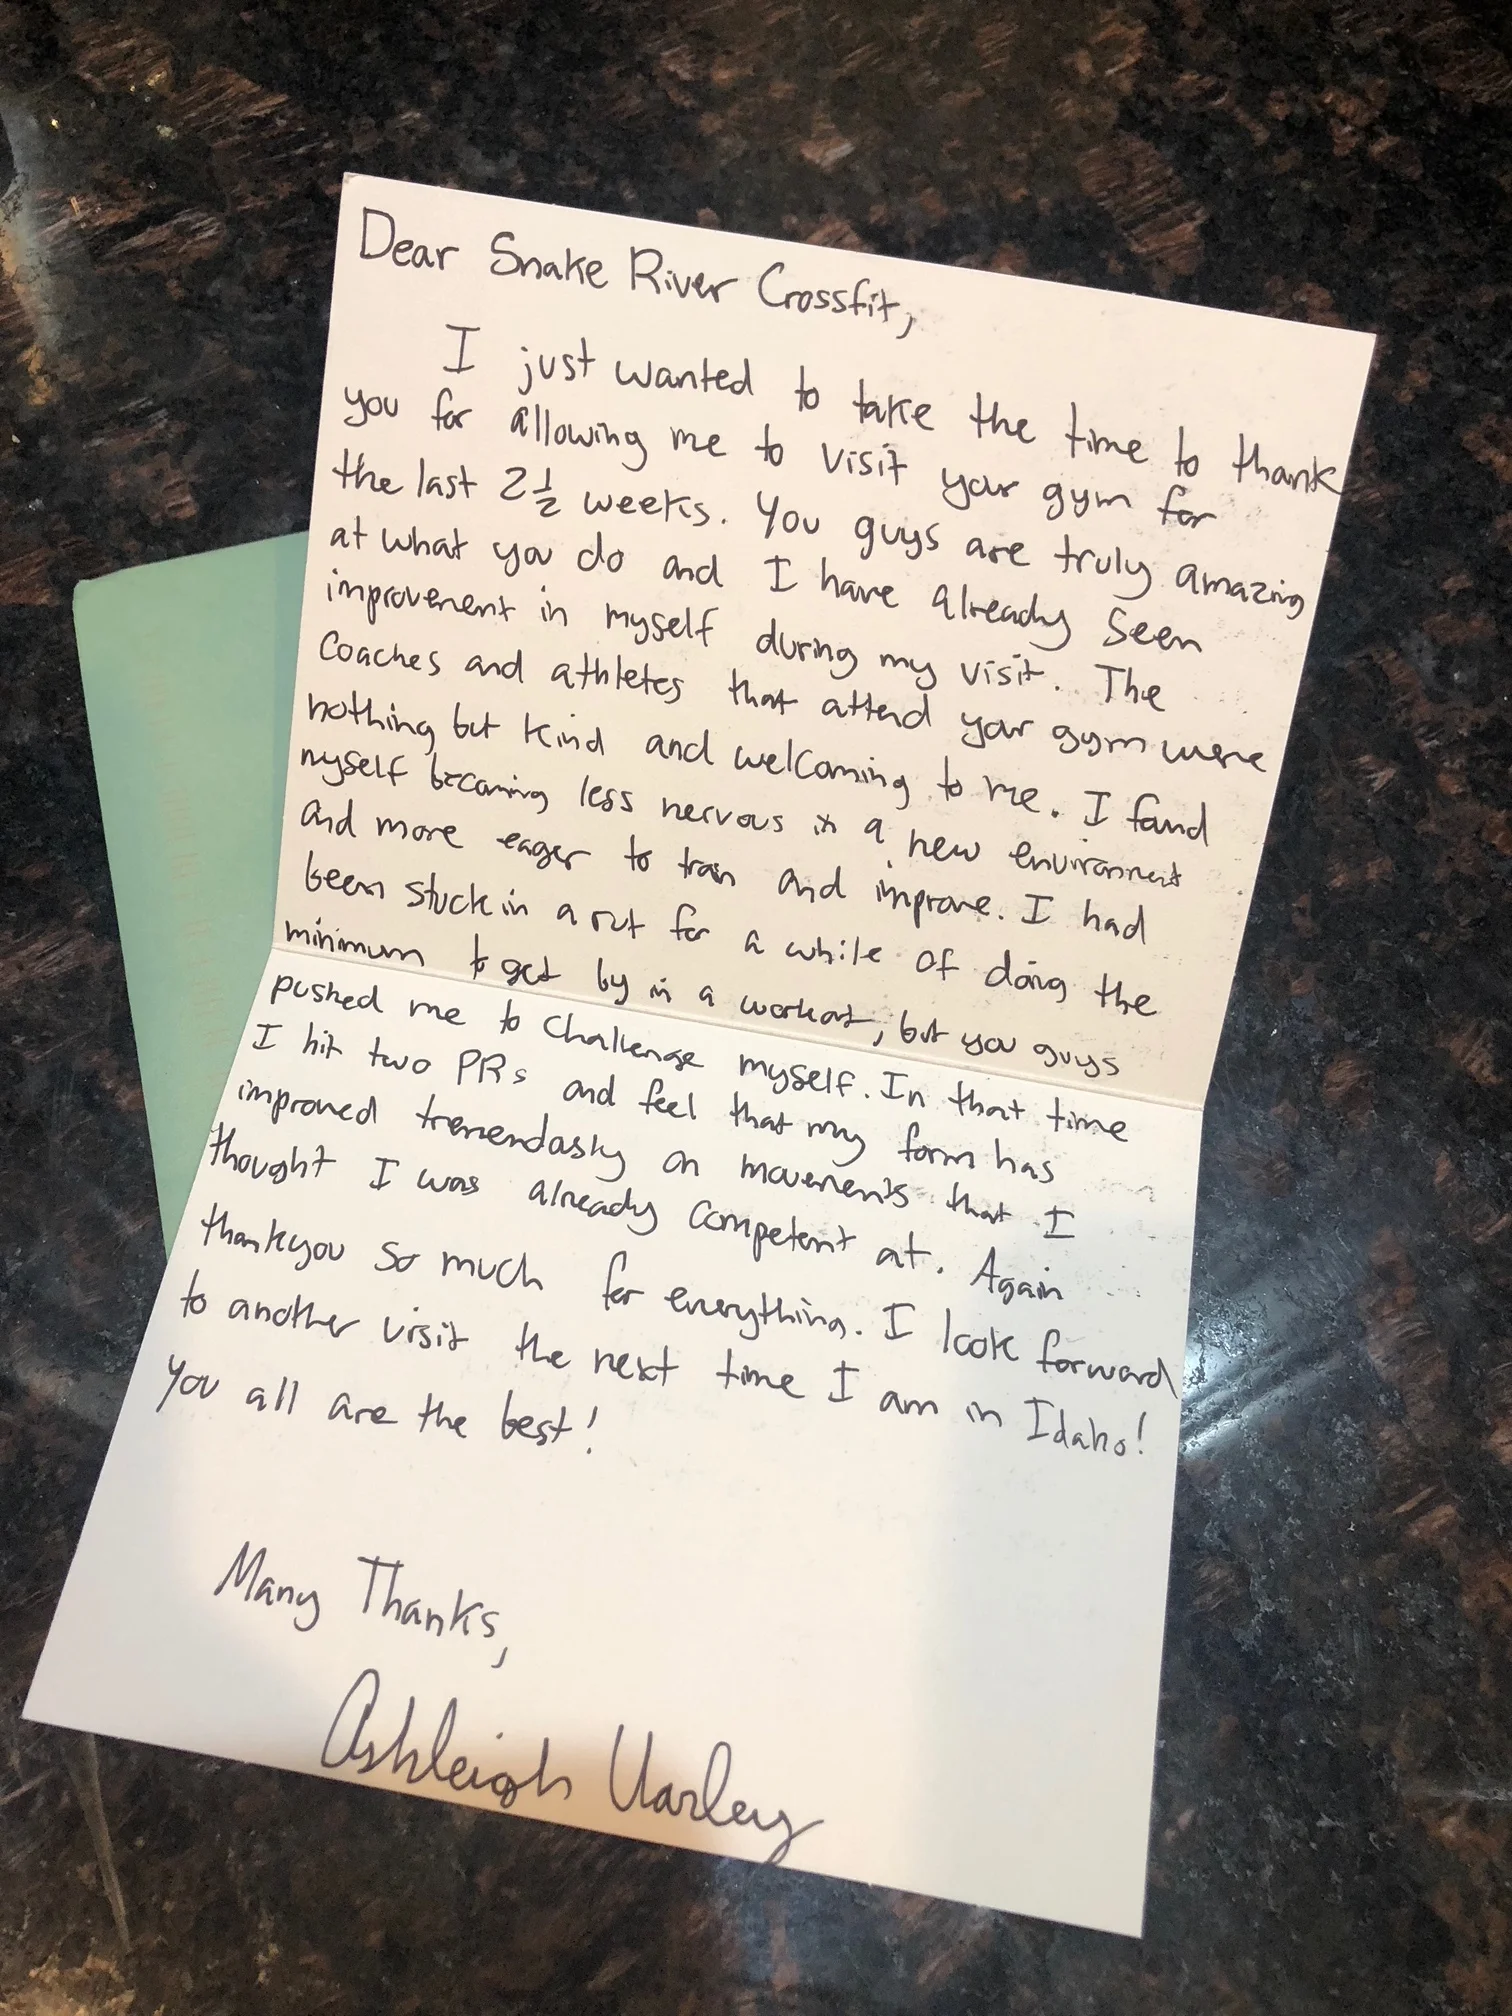 Dear Snake River Crossfit,
I just wanted to take the time to thank
you for allowing me to visit your gym for
the last 2 1/2 weeks. You guys are truly amazing
at what you do and I have already seen
improvement in myself during my visit. The
Coaches and athletes that attend your gym were
nothing but kind and welcoming to me. I found
myself becoming less nervous in a new environment
and more eager to train and improve. I had
been stuck in a rut for a while of doing the
minimum to get by in a workout, but you guys
pushed me to challenge myself. In that time
I hit two PRs and feel that my form has
improved tremendously on movements that I
thought I was already competent at. Again
thankyou so much for everything. I look forward
to another visit the next time I am in Idaho!
You all are the best!
Many Thanks,
Ashleigh Varley